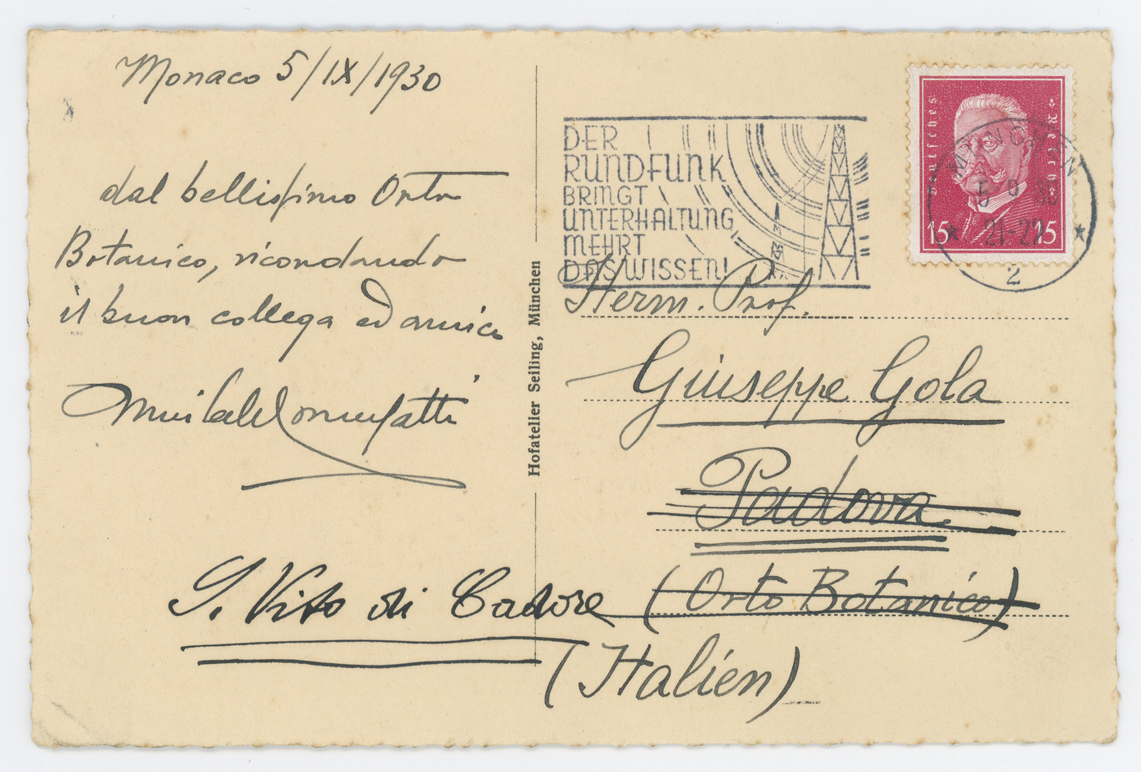 Monaco 5/IX/1930
dal bellissimo Orto
Botanico, ricordando
il buon collega ed amico
Hofatelier Seiling, München
DER
RUNDFUNK
BRINGT
UNTERHALTUNG
MEHRT
DAS WISSEN!
Deutsches Reich
15 15
MÜNCHEN
5 9 30
21-22
2
Herrn. Prof.
Giuseppe Gola
Padova
(Orto Botanico)
S. Vito di Cadore
(Italien)